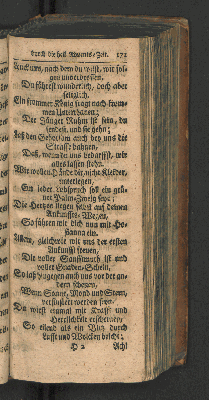 durch die heil. Advents-Zeit. 171
unverdrossen.
Du führest wunderlich, doch aber
seliglich.
Ein frommer König
Unterthanen:
Der Jünger Ruhm ist
sendest, und sie gehn;
Laß den Gehorsam auch bey uns die
Strasse bahnen,
Daß, wenn du uns bedarffst, wir
alles lassen stehn.
Wir wollen die nicht Kleider,
unterlegen,
Ein jeder Lobspruch soll ein grü-
ner Palm-Zweig seyn;
Die Hertzen liegen selbst auf deinen
Ankunffts-Wegen,
So führen wir dich nun mit Ho-
sianna ein.
Allein, gleichwie wir uns der ersten
Ankunfft freuen,
Die voller Sanfftmuth ist und
voller Gnaden-Schein,
So laß hingegen auch uns vor der an-
dern scheuen,
Wenn Sonne, Mond und Stern,
verfinstert werden seyn.
Du wirst einmal mit Krafft und
Herrlichkeit erscheinen,
So eilend als ein Blitz durch
Lufft und Wolcken bricht;
H 2 Ach!